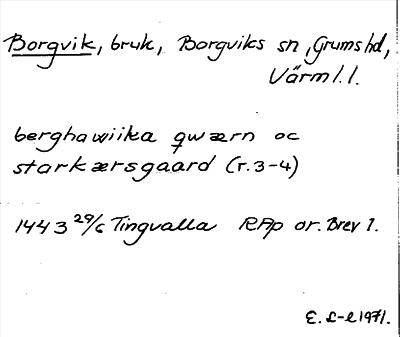 Borgvik, bruk, Borgviks sn, Grums hd,
Värml.l.
berghawiika qwærn oc
starkærsgaard (r.3-4)
1443 29/6 Tingvalla RAp or. Brev 1.
E. L-l 1971.